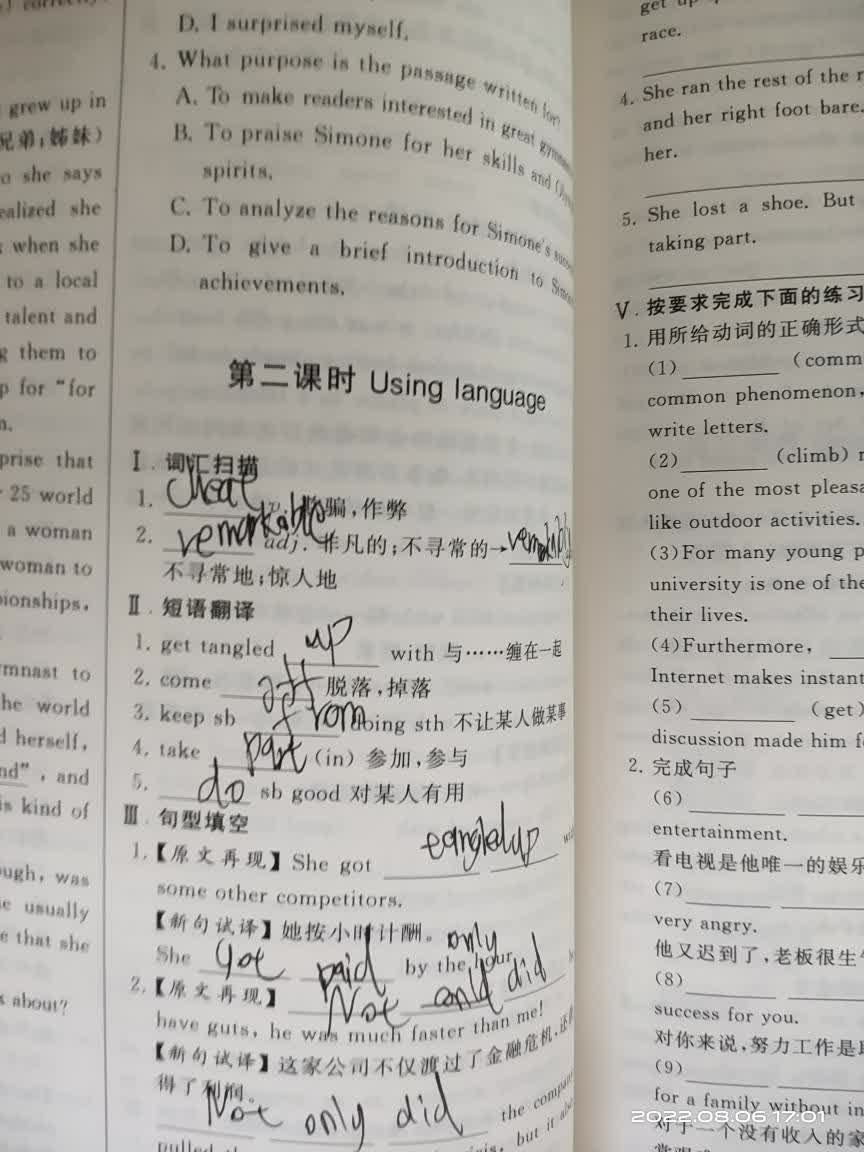 grew up in
兄弟;姊妹)
she says
realized she
when she
to a local
talent and
them to
for “for
prise that
25 world
a woman
woman to
pionships,
mnast to
he world
herself,
nd”, and
is kind of
ough, was
usually
e that she
about?
D. I surprised myself.
4. What purpose is the passage written for?
A. To make readers interested in great
B. To praise Simone for her skills and
spirits.
C. To analyze the reasons for Simone's
D. To give a brief introduction to
achievements.
第二课时 Using language
Ⅰ. 词汇扫描
1. cheat 骗,作弊
2. remarkable adj. 非凡的;不寻常的→remarkably
不寻常地;惊人地
Ⅱ. 短语翻译
1. get tangled up with 与……缠在一起
2. come off 脱落,掉落
3. keep sb from doing sth 不让某人做某事
4. take part (in) 参加,参与
5. do sb good 对某人有用
Ⅲ. 句型填空
1.【原文再现】She got tangled up
some other competitors.
【新句试译】她按小时计酬。
She got paid by the hour. only
2.【原文再现】 Not only did
have guts, he was much faster than me!
【新句试译】这家公司不仅渡过了金融危机,
得了利润。
Not only did the
but it
pulled
get up
race.
4. She ran the rest of the
and her right foot bare.
her.
5. She lost a shoe. But
taking part.
Ⅴ. 按要求完成下面的练习
1. 用所给动词的正确形式
(1) (comm
common phenomenon,
write letters.
(2) (climb)
one of the most
like outdoor activities.
(3)For many young
university is one of the
their lives.
(4)Furthermore,
Internet makes instant
(5) (get)
discussion made him
2. 完成句子
(6)
entertainment.
看电视是他唯一的娱乐
(7)
very angry.
他又迟到了,老板很生气
(8)
success for you.
对你来说,努力工作是
(9)
for a family without
对于一个没有收入的家
2022.08.06 17:01